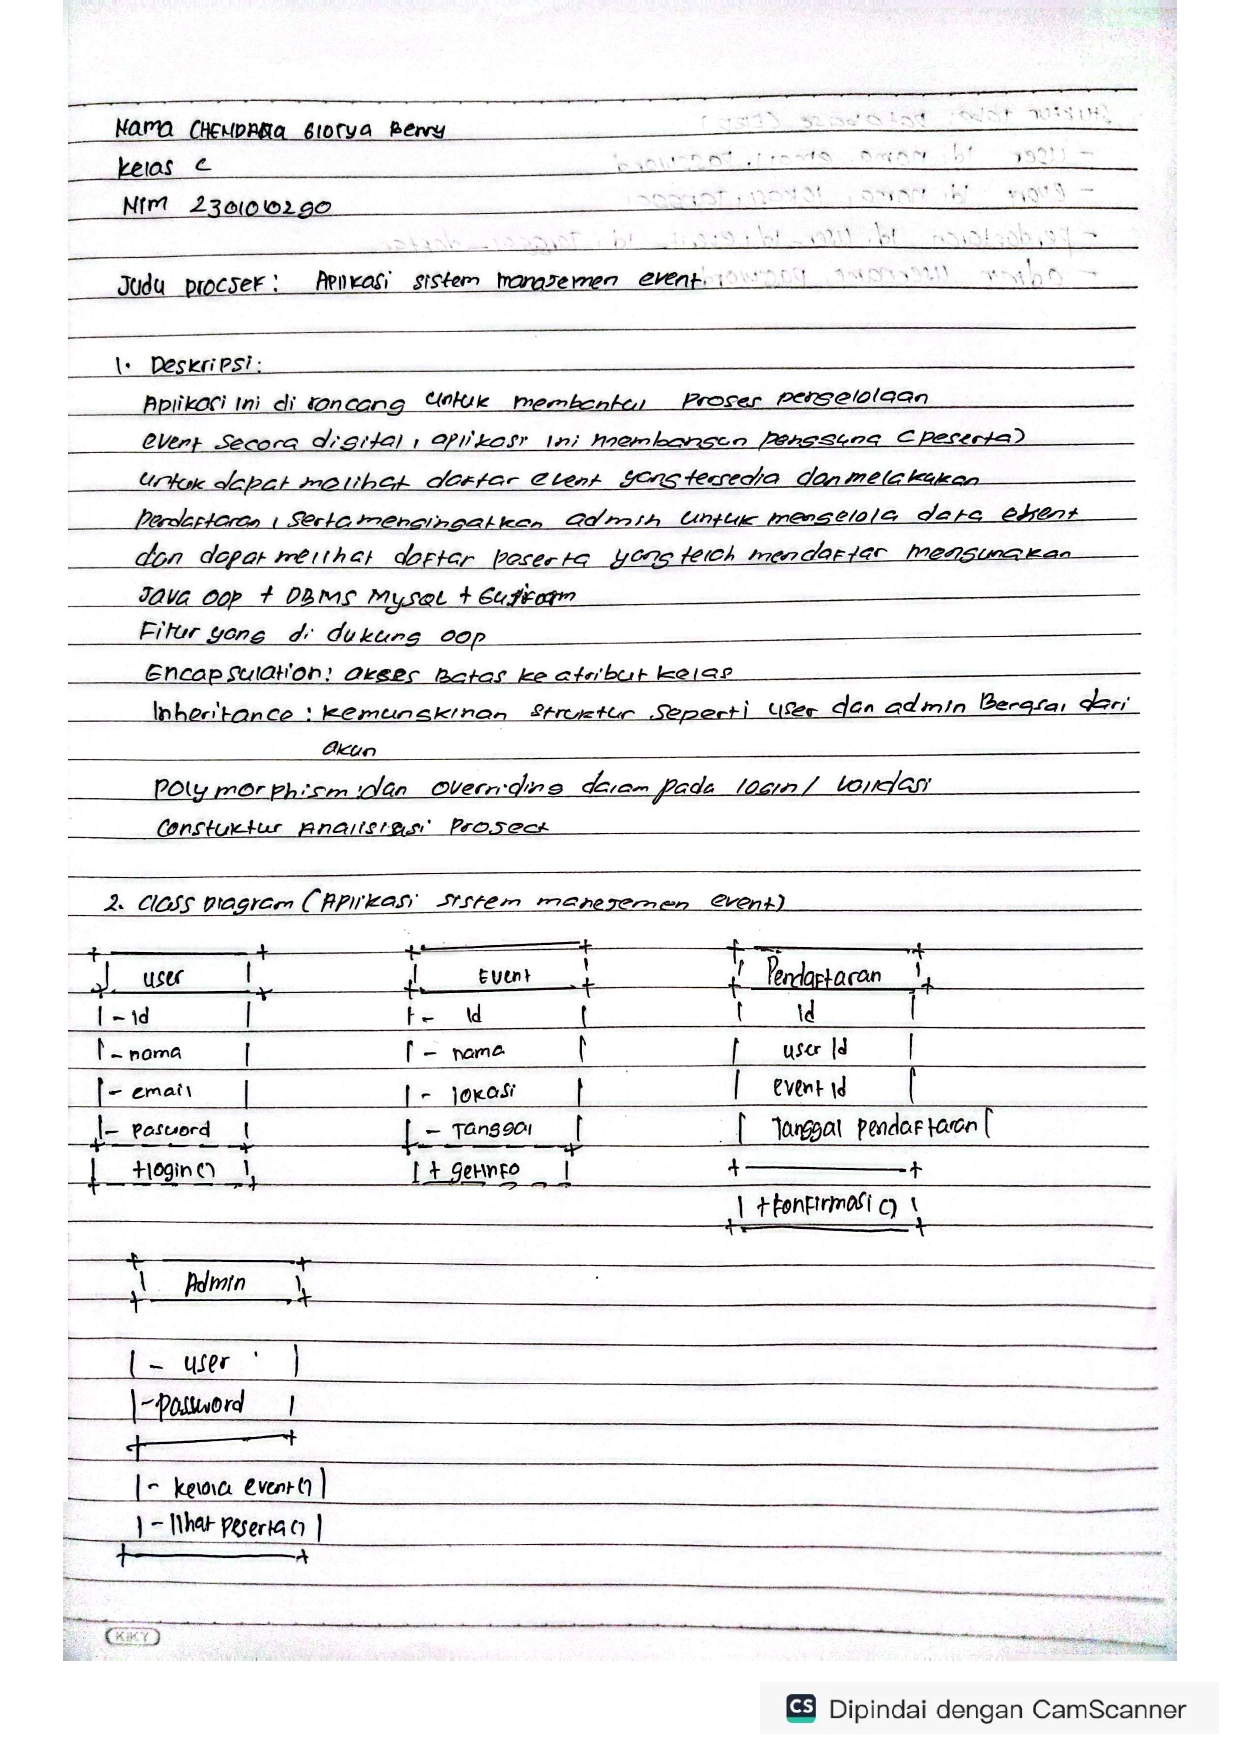 Nama CHENDANA Glorya Benny
Kelas C
NIM 230101290
Judu procsek : Aplikasi sistem manajemen event
1. Deskripsi :
Aplikasi ini di rancang untuk membantu Proses pengelolaan
event secara digital, aplikasi ini membangun pengguna (peserta)
untuk dapat melihat daftar event yang tersedia dan melakukan
Pendaftaran, serta mengingatkan admin untuk mengelola data event
dan dapat melihat daftar peserta yang telah mendaftar mengunakan
Java OOP + DBMS MySQL +
Fitur yang di dukung OOP
Encapsulation : akses Batas ke atribut kelas
Inheritance : kemungkinan struktur seperti user dan admin Berasal dari
akun
Polymorphism dan overriding dalam pada login / validasi
Constuktur Project
2. Class Diagram (Aplikasi sistem manejemen event)
user Event Pendaftaran
- id - id id
- nama - nama user id
- email - lokasi event id
- pasword - Tanggal Tanggal pendaftaran
+ login() + getinfo
+ konfirmasi ()
Admin
- user
- password
- kelola event()
- lihat peserta()
KIKY
CS Dipindai dengan CamScanner